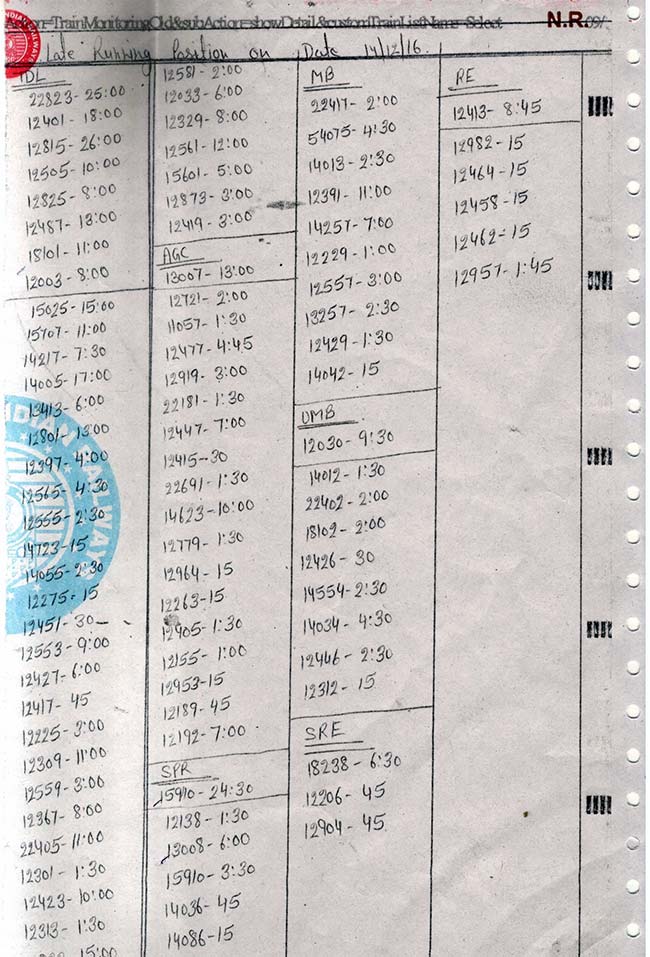 Action=TrainMonitoringOld&subAction=showDetail&customTrainListName=Select
N.R.
09/
INDIAN RAILWAYS
Late Running Position on Date 14/12/16.
TDL
22823-25:00
12401-18:00
12815-26:00
12505-10:00
12825-8:00
12487-13:00
18101-11:00
12003-8:00
15025-15:00
15707-11:00
14217-7:30
14005-17:00
13413-6:00
12801-13:00
12397-4:00
12565-4:30
12555-2:30
14723-15
14055-2:30
12275-15
12451-30-
12553-9:00
12427-6:00
12417-45
12225-3:00
12309-11:00
12559-3:00
12367-8:00
22405-11:00
12301-1:30
12423-10:00
12313-1:30
15:00
12581-2:00
12033-6:00
12329-8:00
12561-12:00
15601-5:00
12873-3:00
12419-3:00
AGC
13007-13:00
12721-2:00
11057-1:30
12477-4:45
12919-3:00
22181-1:30
12447-7:00
12415-30
22691-1:30
14623-10:00
12779-1:30
12964-15
12263-15
12405-1:30
12155-1:00
12953-15
12189-45
12192-7:00
SPR
15910-24:30
12138-1:30
13008-6:00
15910-3:30
14036-45
14086-15
MB
22417-2:00
54075-4:30
14013-2:30
12391-11:00
14257-7:00
12229-1:00
12557-3:00
13257-2:30
12429-1:30
14042-15
UMB
12030-9:30
14012-1:30
22402-2:00
18102-2:00
12426-30
14554-2:30
14034-4:30
12446-2:30
12312-15
SRE
18238-6:30
12206-45
12904-45
RE
12413-8:45
12982-15
12464-15
12458-15
12462-15
12957-1:45
INDIAN RAILWAYS